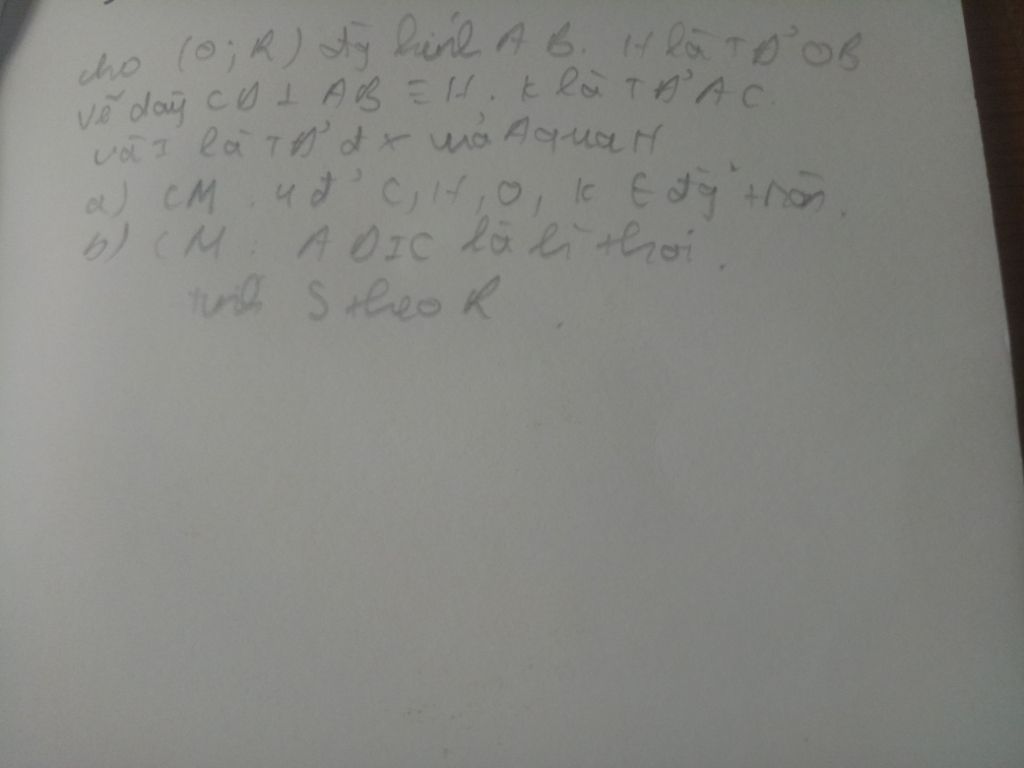 cho (O; R) đg kính AB. H là TĐ' OB
vẽ dây CD ⊥ AB ≡ H. K là TĐ' AC.
và I là TĐ' đx của A qua H
a) CM: 4 đ' C, H, O, K ∈ đg tròn.
b) CM: ADIC là h thoi.
tính S theo R.